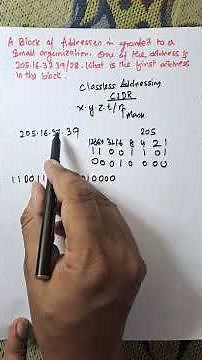 A Block of Addresses is granted to a
Small organization. One of the address is
205.16.37.39/28. What is the first address
in the block.
Classless Addressing
CIDR
x.y.z.t/n
Mask
205.16.37.39
205
128 64 32 16 8 4 2 1
1 1 0 0 1 1 0 1
0 0 0 1 0 0 0 0
11001 10000